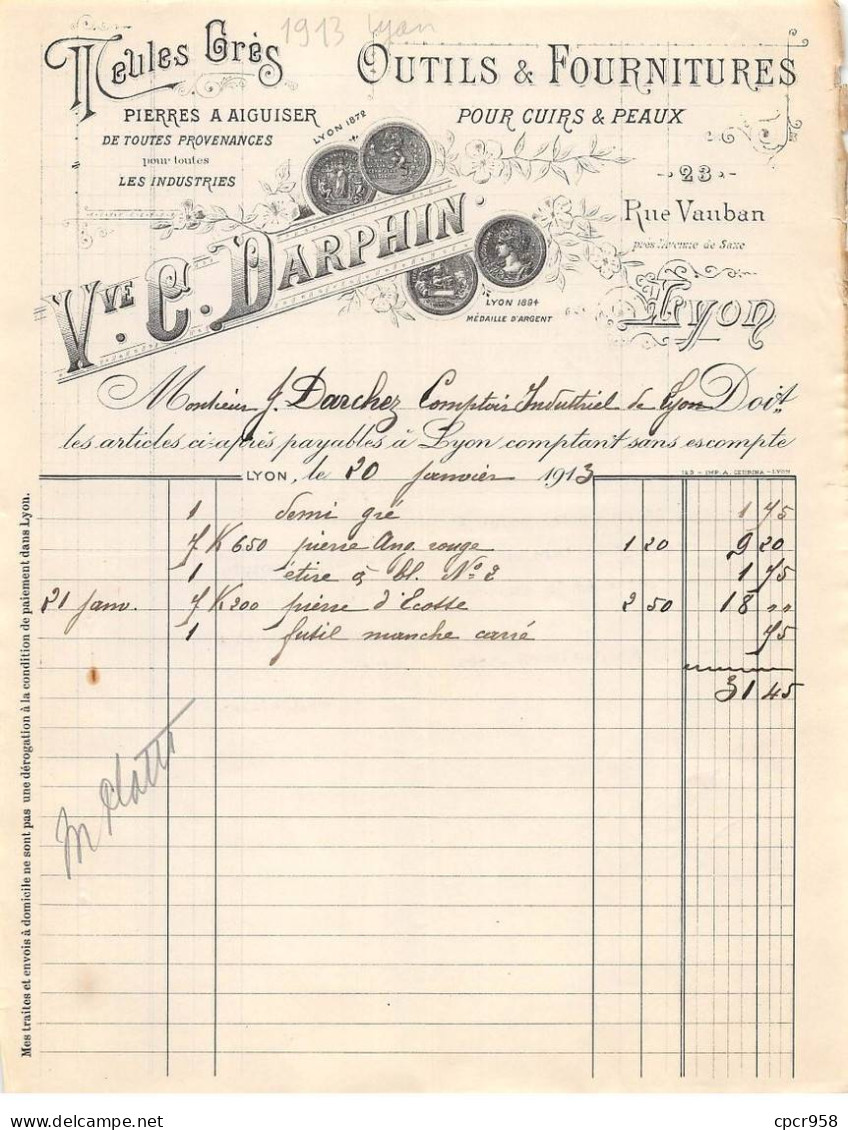 1913 Lyon
Meules Grès
PIERRES A AIGUISER
DE TOUTES PROVENANCES
pour toutes
LES INDUSTRIES
OUTILS & FOURNITURES
POUR CUIRS & PEAUX
LYON 1872
23
Rue Vauban
près l'Avenue de Saxe
Lyon
Vve C. DARPHIN
LYON 1894
MÉDAILLE D'ARGENT
Monsieur J. Darchez Comptoir Industriel de Lyon Doit
les articles ci-après payables à Lyon comptant sans escompte
LYON, le 20 janvier 1913
1 demi gré 1 75
7 K 650 pierre Ang. rouge 1 20 9 20
1 étire à bl. No 2 1 75
21 janv. 7 K 200 pierre d'Ecosse 2 50 18 "
1 fusil manche carré 75
31 45
Mes traites et envois à domicile ne sont pas une dérogation à la condition de paiement dans Lyon.
cpcr958